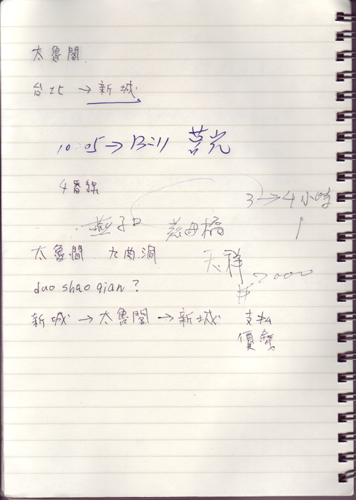 太魯閣
台北 → 新城
10:05→13:11 莒光
4番線
3→4小時
燕子口 慈母橋
太魯閣 九曲洞
天祥
duo shao qian?
新城 → 太魯閣 → 新城
支払
價錢